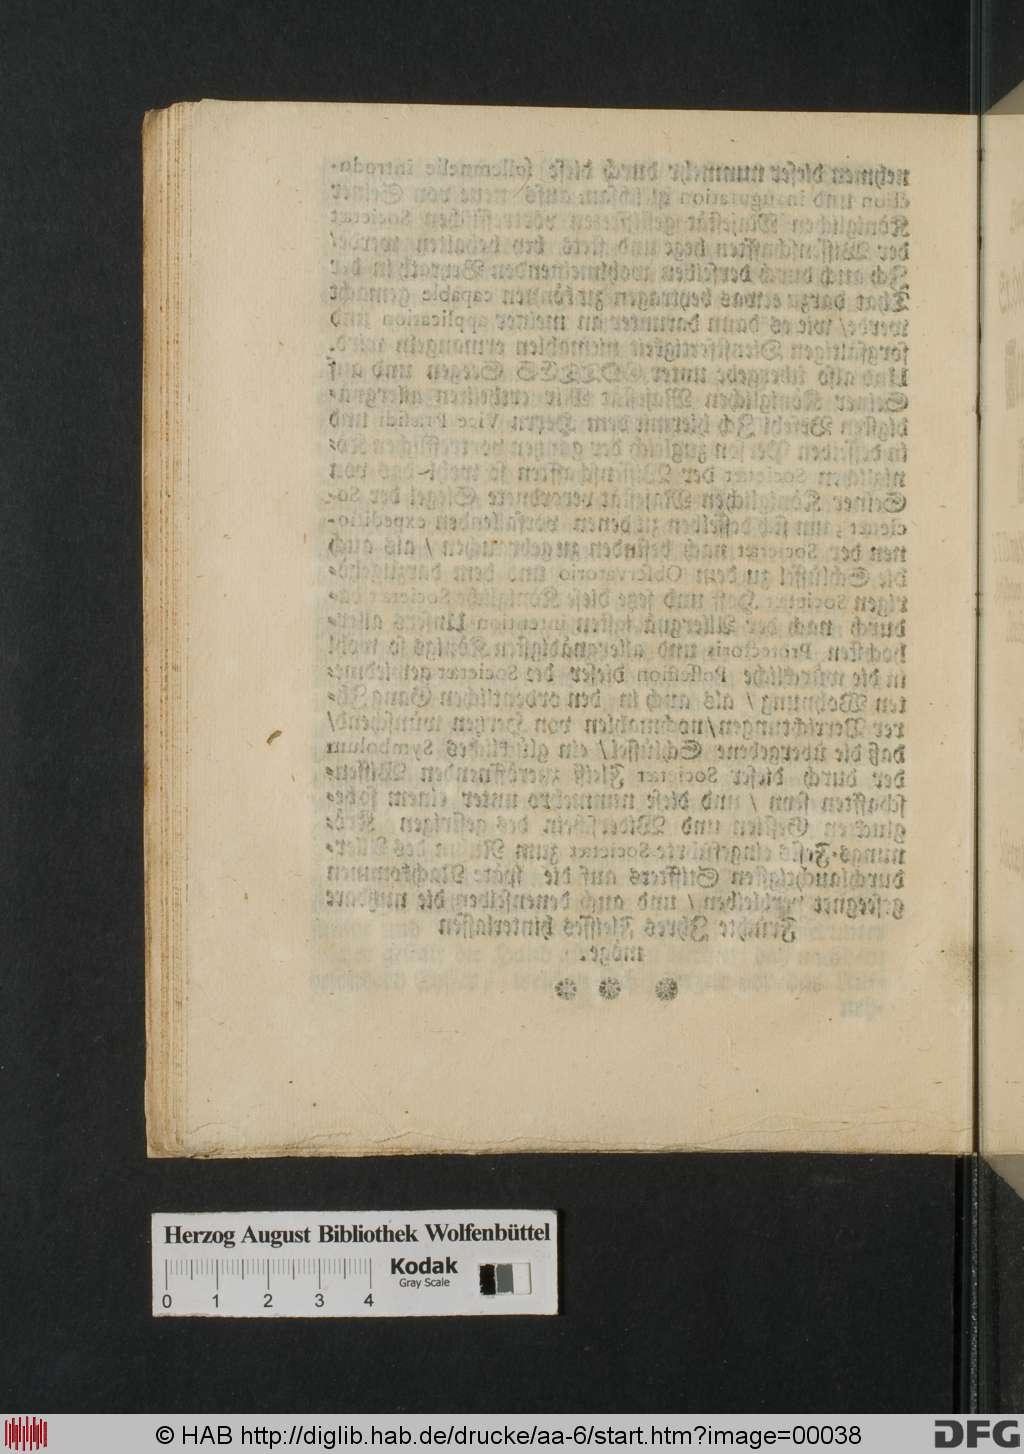 nehmen dieser nunmehr durch diese sollemnelle introdu-
ction und inauguration aufs neue von Seiner
Königlichen Majestät gestiffteten vortrefflichen Societät
der Wissenschafften hege und stets bey behalten werde/
Ich auch durch derselben wohlmeinenden Beyrath in der
That darzu etwas beytragen zu können capable gemacht
werde/ wie es dann darunter an meiner application und
sorgfältigen Dienstfertigkeit niemahlen ermangeln wird.
Und also übergebe unter GOTTES Seegen und auf
Seiner Königlichen Majestät Mir ertheilten allergnä-
digsten Befehl Ich hiermit dem Herrn Vice-Præsidi und
in desselben Person zugleich der gantzen vortrefflichen Kö-
niglichen Societät der Wissenschafften so wohl das von
Seiner Königlichen Majestät verordnete Siegel der So-
cietät, um sich desselben zu denen vorfallenden expeditio-
nen der Societät nach befinden zu gebrauchen / als auch
die Schlüssel zu dem Observatorio und dem darzugehö-
rigen Societät-Hoff und setze diese Königliche Societät da-
durch nach der Allergnädigsten intention Unsers aller-
höchsten Protectoris und allergnädigsten Königs so wohl
in die würckliche Possession dieser der Societät gewidme-
ten Wohnung / als auch in den ordentlichen Gang Ih-
rer Verrichtungen/ nochmahlen von Hertzen wünschend/
daß die übergebene Schlüssel/ ein glückliches Symbolum
der durch dieser Societät Fleiß zu eröffnenden Wissen-
schafften seyn / und diese nunmehro unter einem so be-
glückten Gestirn und Wiederschein des gestrigen Krö-
nungs-Fests eingeführte Societät zum Ruhm des Aller-
durchlauchtigsten Stiffters auf die späte Nachkommen
geseegnet verbleiben / und auch denenselben die nutzbare
Früchte Ihres Fleisses hinterlassen
möge.
Herzog August Bibliothek Wolfenbüttel
Kodak
Gray Scale
0 1 2 3 4
© HAB http://diglib.hab.de/drucke/aa-6/start.htm?image=00038
DFG